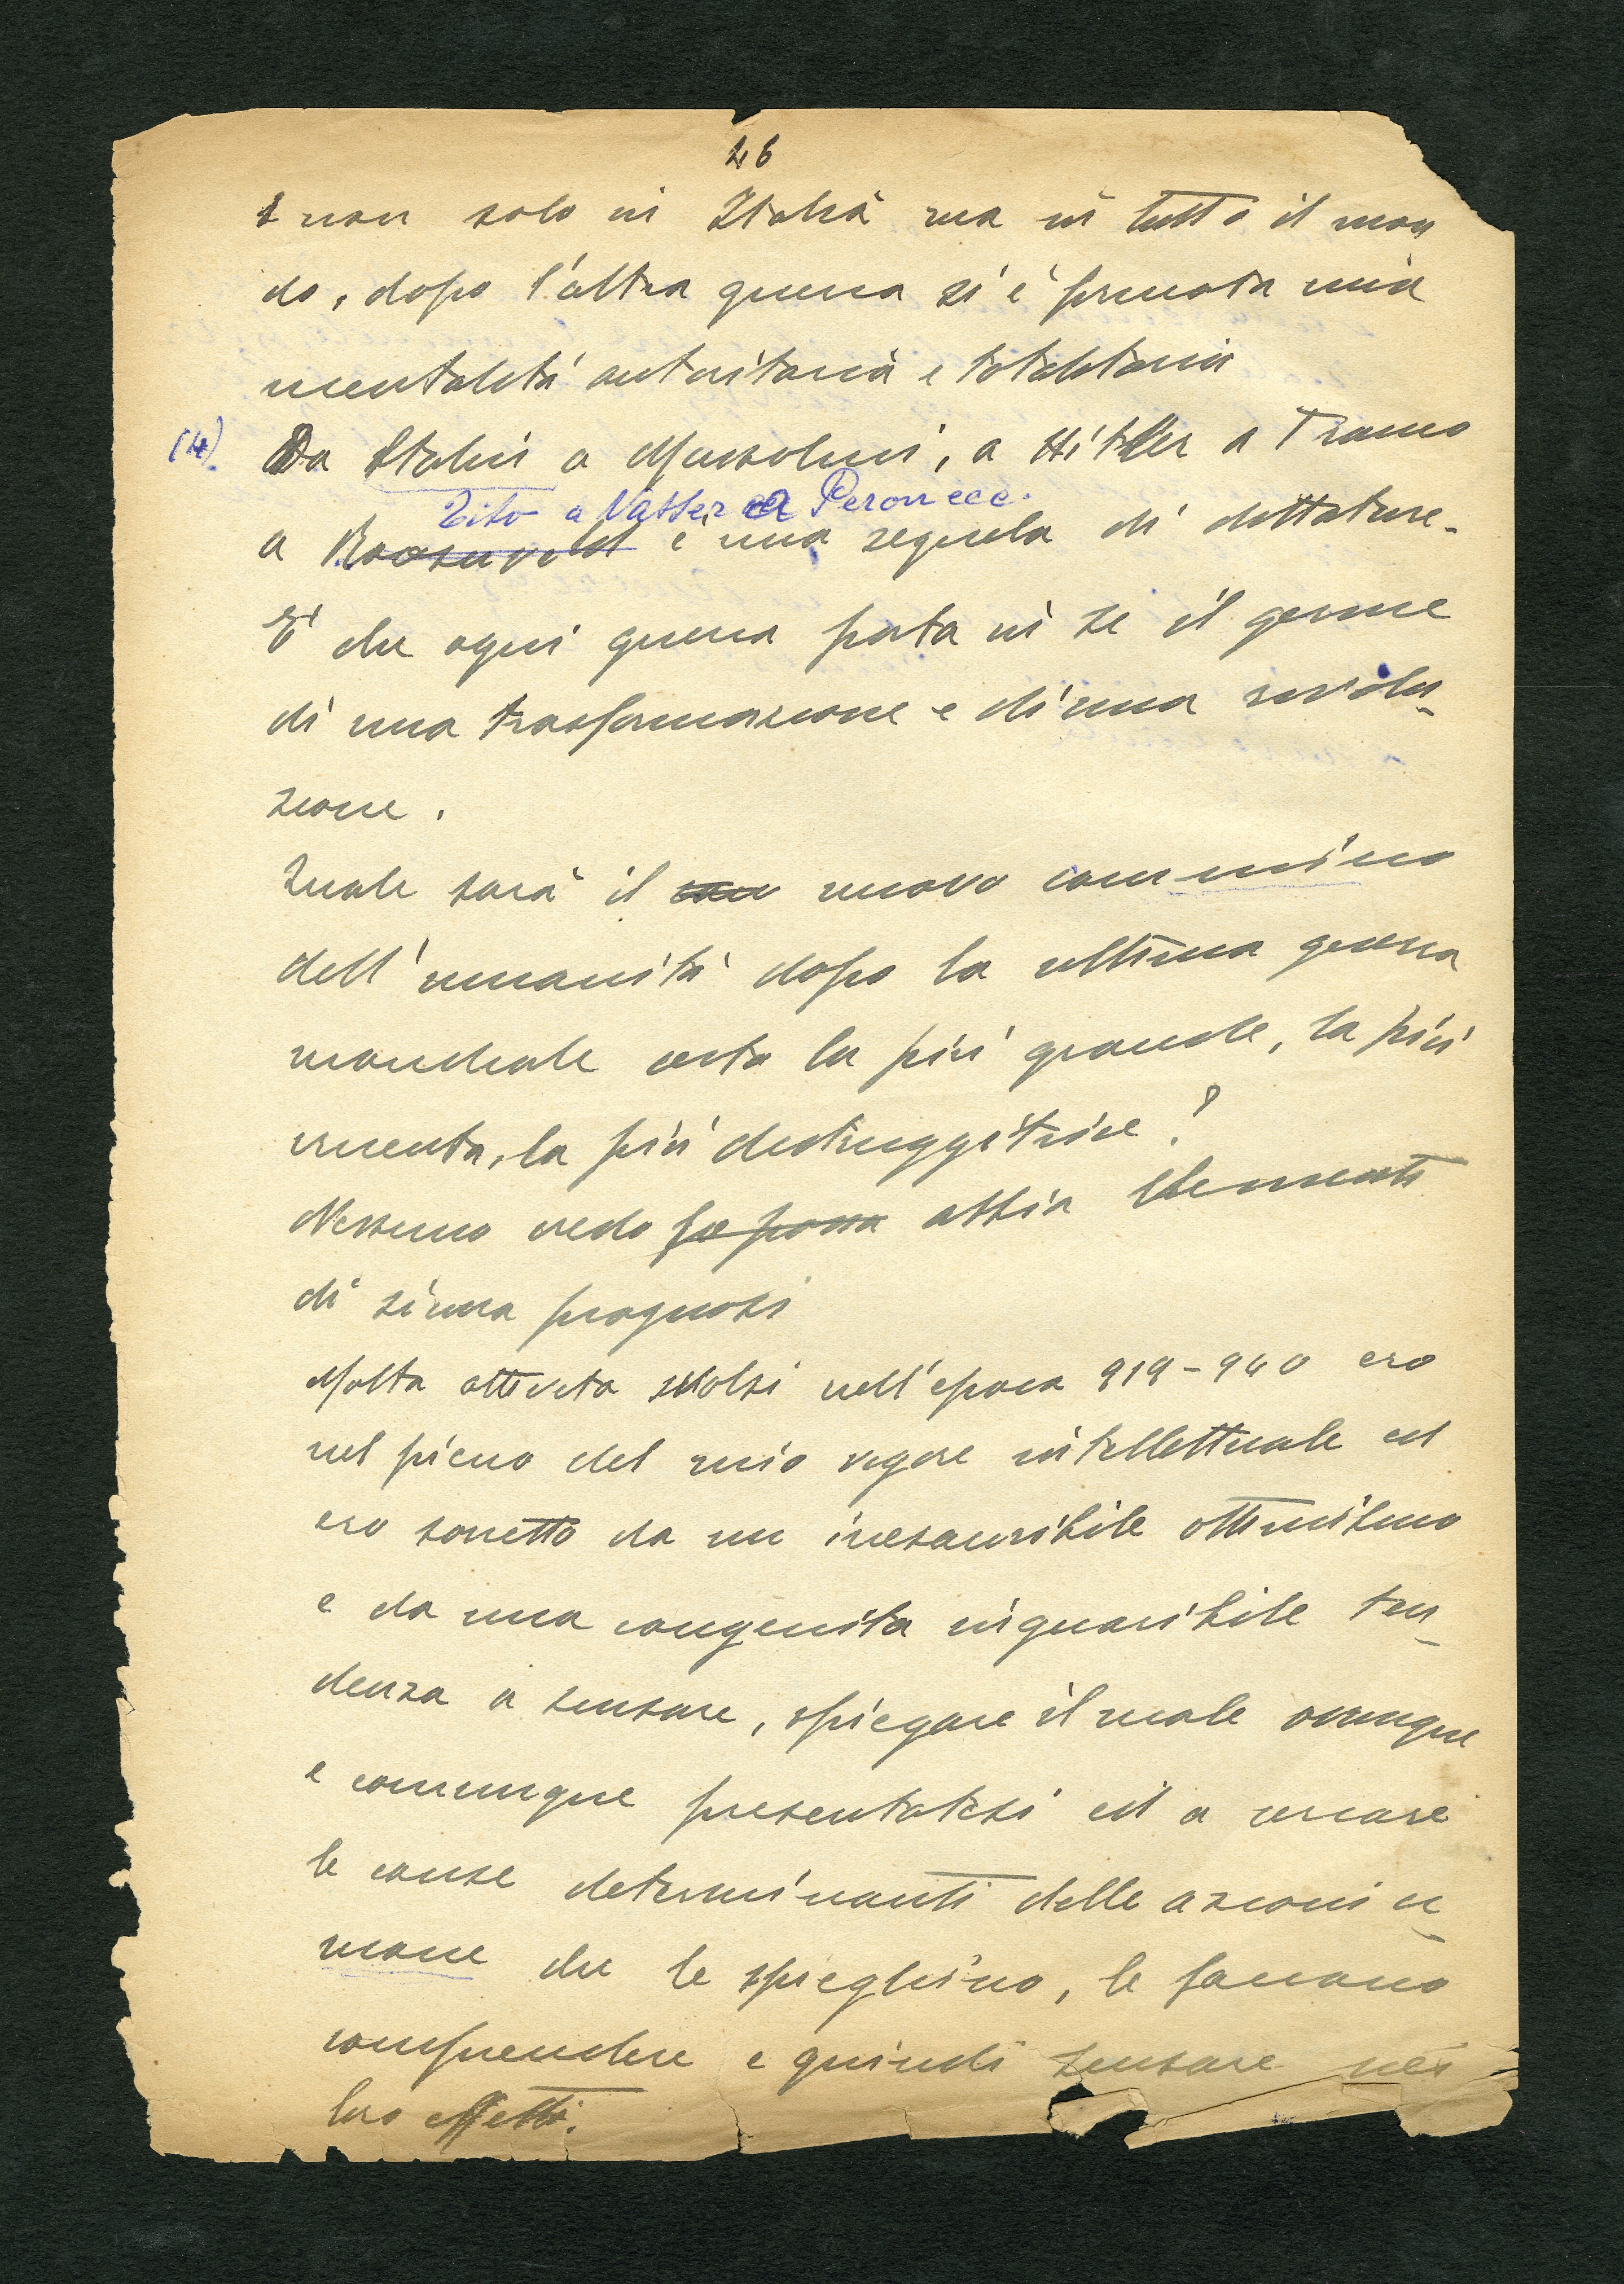 46
e non solo in Italia ma in tutto il mon
do, dopo l'altra guerra si è formata una
mentalità autoritaria e totalitaria
(4) Da Stalin a Mussolini, a Hitler a Franco
Tito a Nasser a Peron ecc.
a Roosevelt è una sequela di dittature.
È che ogni guerra porta in se il germe
di una trasformazione e di una rivolu-
zione.
Quale sarà il nuovo cammino
dell'umanità dopo la ultima guerra
mondiale certo la più grande, la più
cruenta, la più distruggitrice?
Nessuno credo possa abbia elementi
di sicura prognosi
Molta attività svolsi nell'epoca 919-940 ero
nel pieno del mio vigore intellettuale ed
ero sorretto da un inesauribile ottimismo
e da una congenita inguaribile ten-
denza a scusare, spiegare il male ovunque
e comunque presentatosi ed a cercare
le cause determinanti delle azioni u-
mane che le spieghino, le facciano
comprendere e quindi scusare nei
loro effetti.